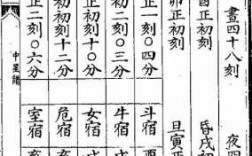 晝四十八刻 夜四
正初刻 昏戌初刻
卯正初刻 旦寅
正一刻〇四分 斗宿
初二刻〇三分 牛宿
正初刻一〇分 女宿
初初刻十二分 危宿
正二刻〇六分 室宿
中星譜